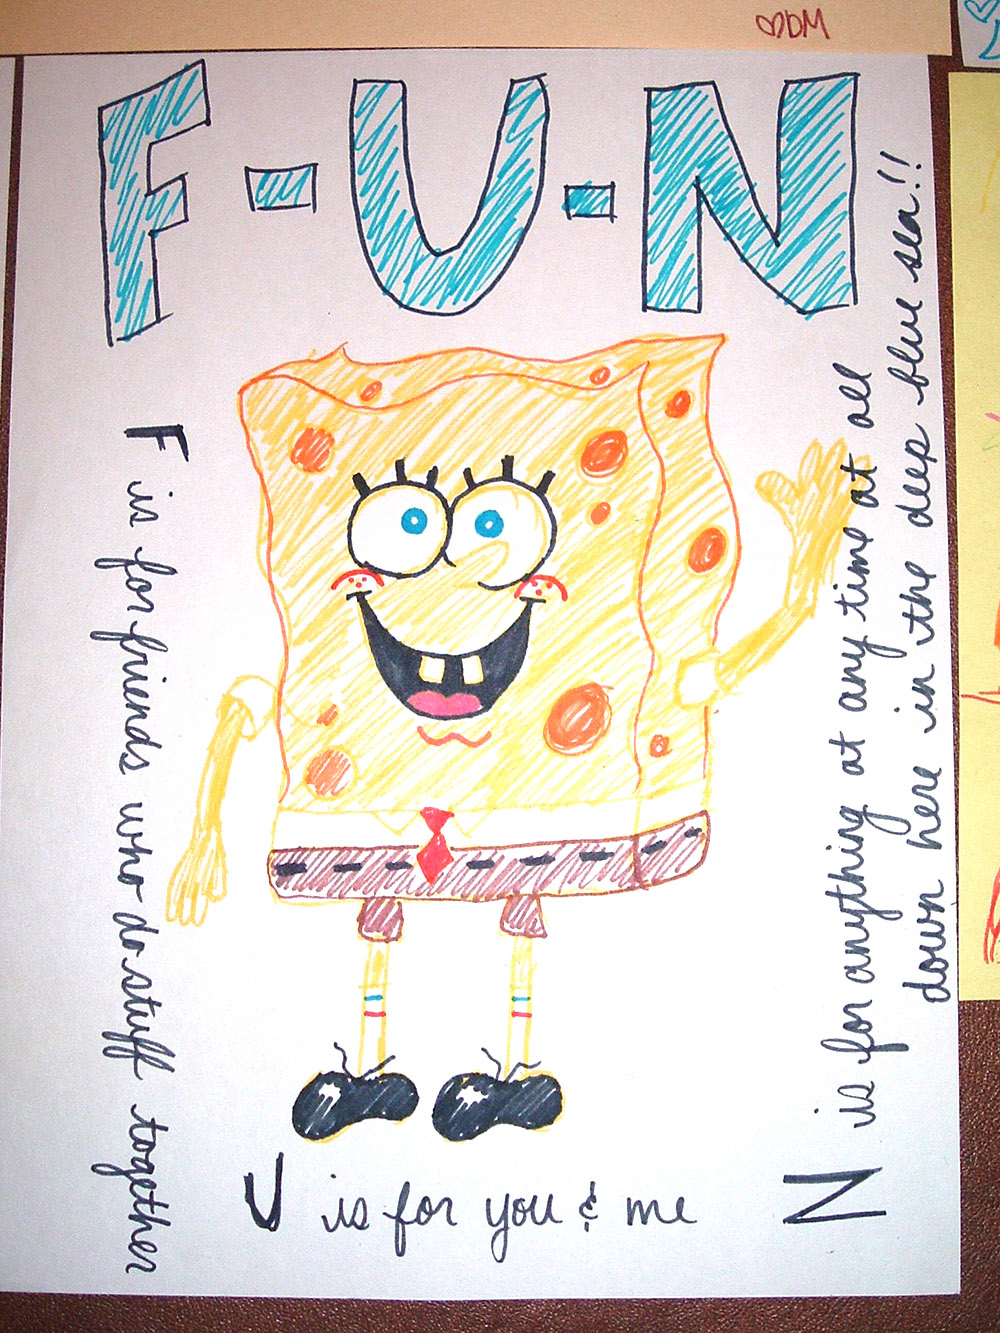 ♡DM
F-U-N
F is for friends who do stuff together
U is for you & me
N is for anything at any time at all
down here in the deep blue sea!!